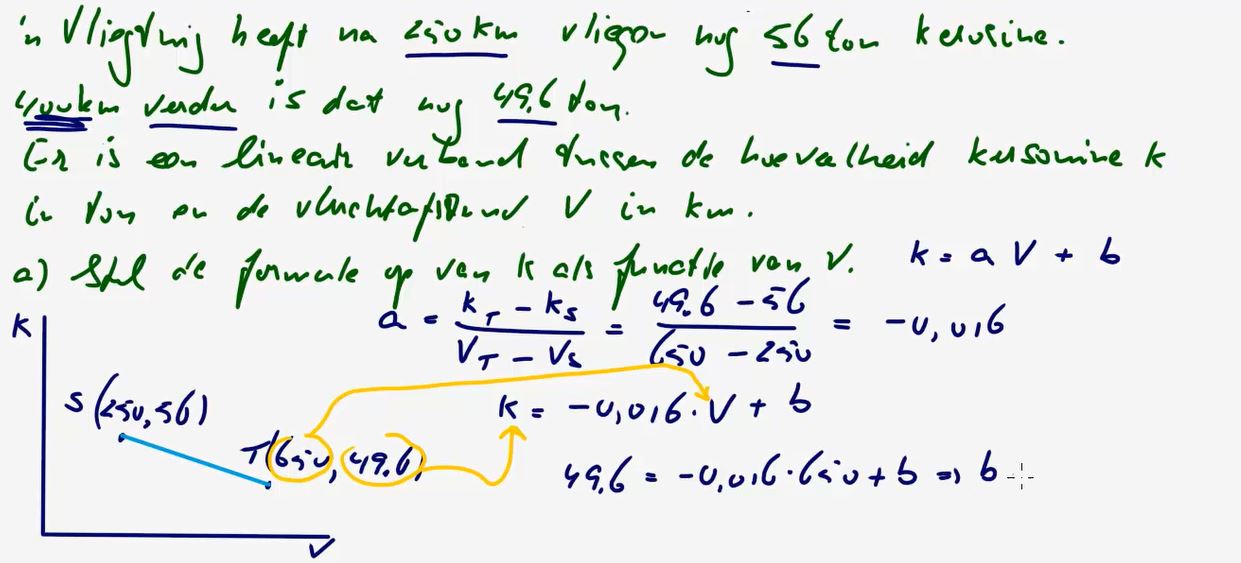 'n Vliegtuig heeft na 250 km vliegen nog 56 ton kerosine.
400km verder is dat nog 49,6 ton.
Er is een lineair verband tussen de hoeveelheid kerosine k
in ton en de vluchtafstand V in km.
a) Stel de formule op van k als functie van V. k = a V + b
a = (k_T - k_S) / (V_T - V_S) = (49.6 - 56) / (650 - 250) = -0,016
K
S(250,56)
k = -0,016·V + b
T(650, 49.6)
49,6 = -0,016·650 + b => b
V